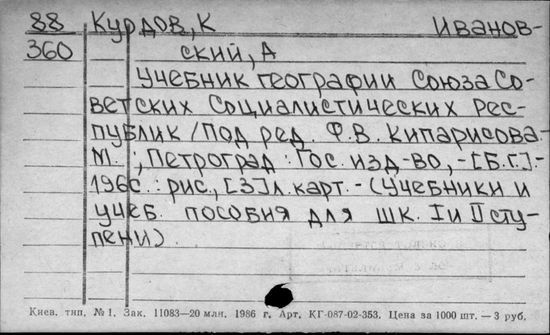 88 Курдов, К Иванов-
360 ский, А
Учебник географии Союза Со-
ветских Социалистических Рес-
публик / Под ред. Ф.В. Кипарисова.-
М. ; Петроград : Гос. изд-во, - [Б.Г.].-
196с. : рис., [3]л. карт. - (Учебники и
учеб. пособия для шк. I и II сту-
пени).
Киев. тип. № 1. Зак. 11083—20 млн. 1986 г. Арт. КГ-087-02-353. Цена за 1000 шт. — 3 руб.